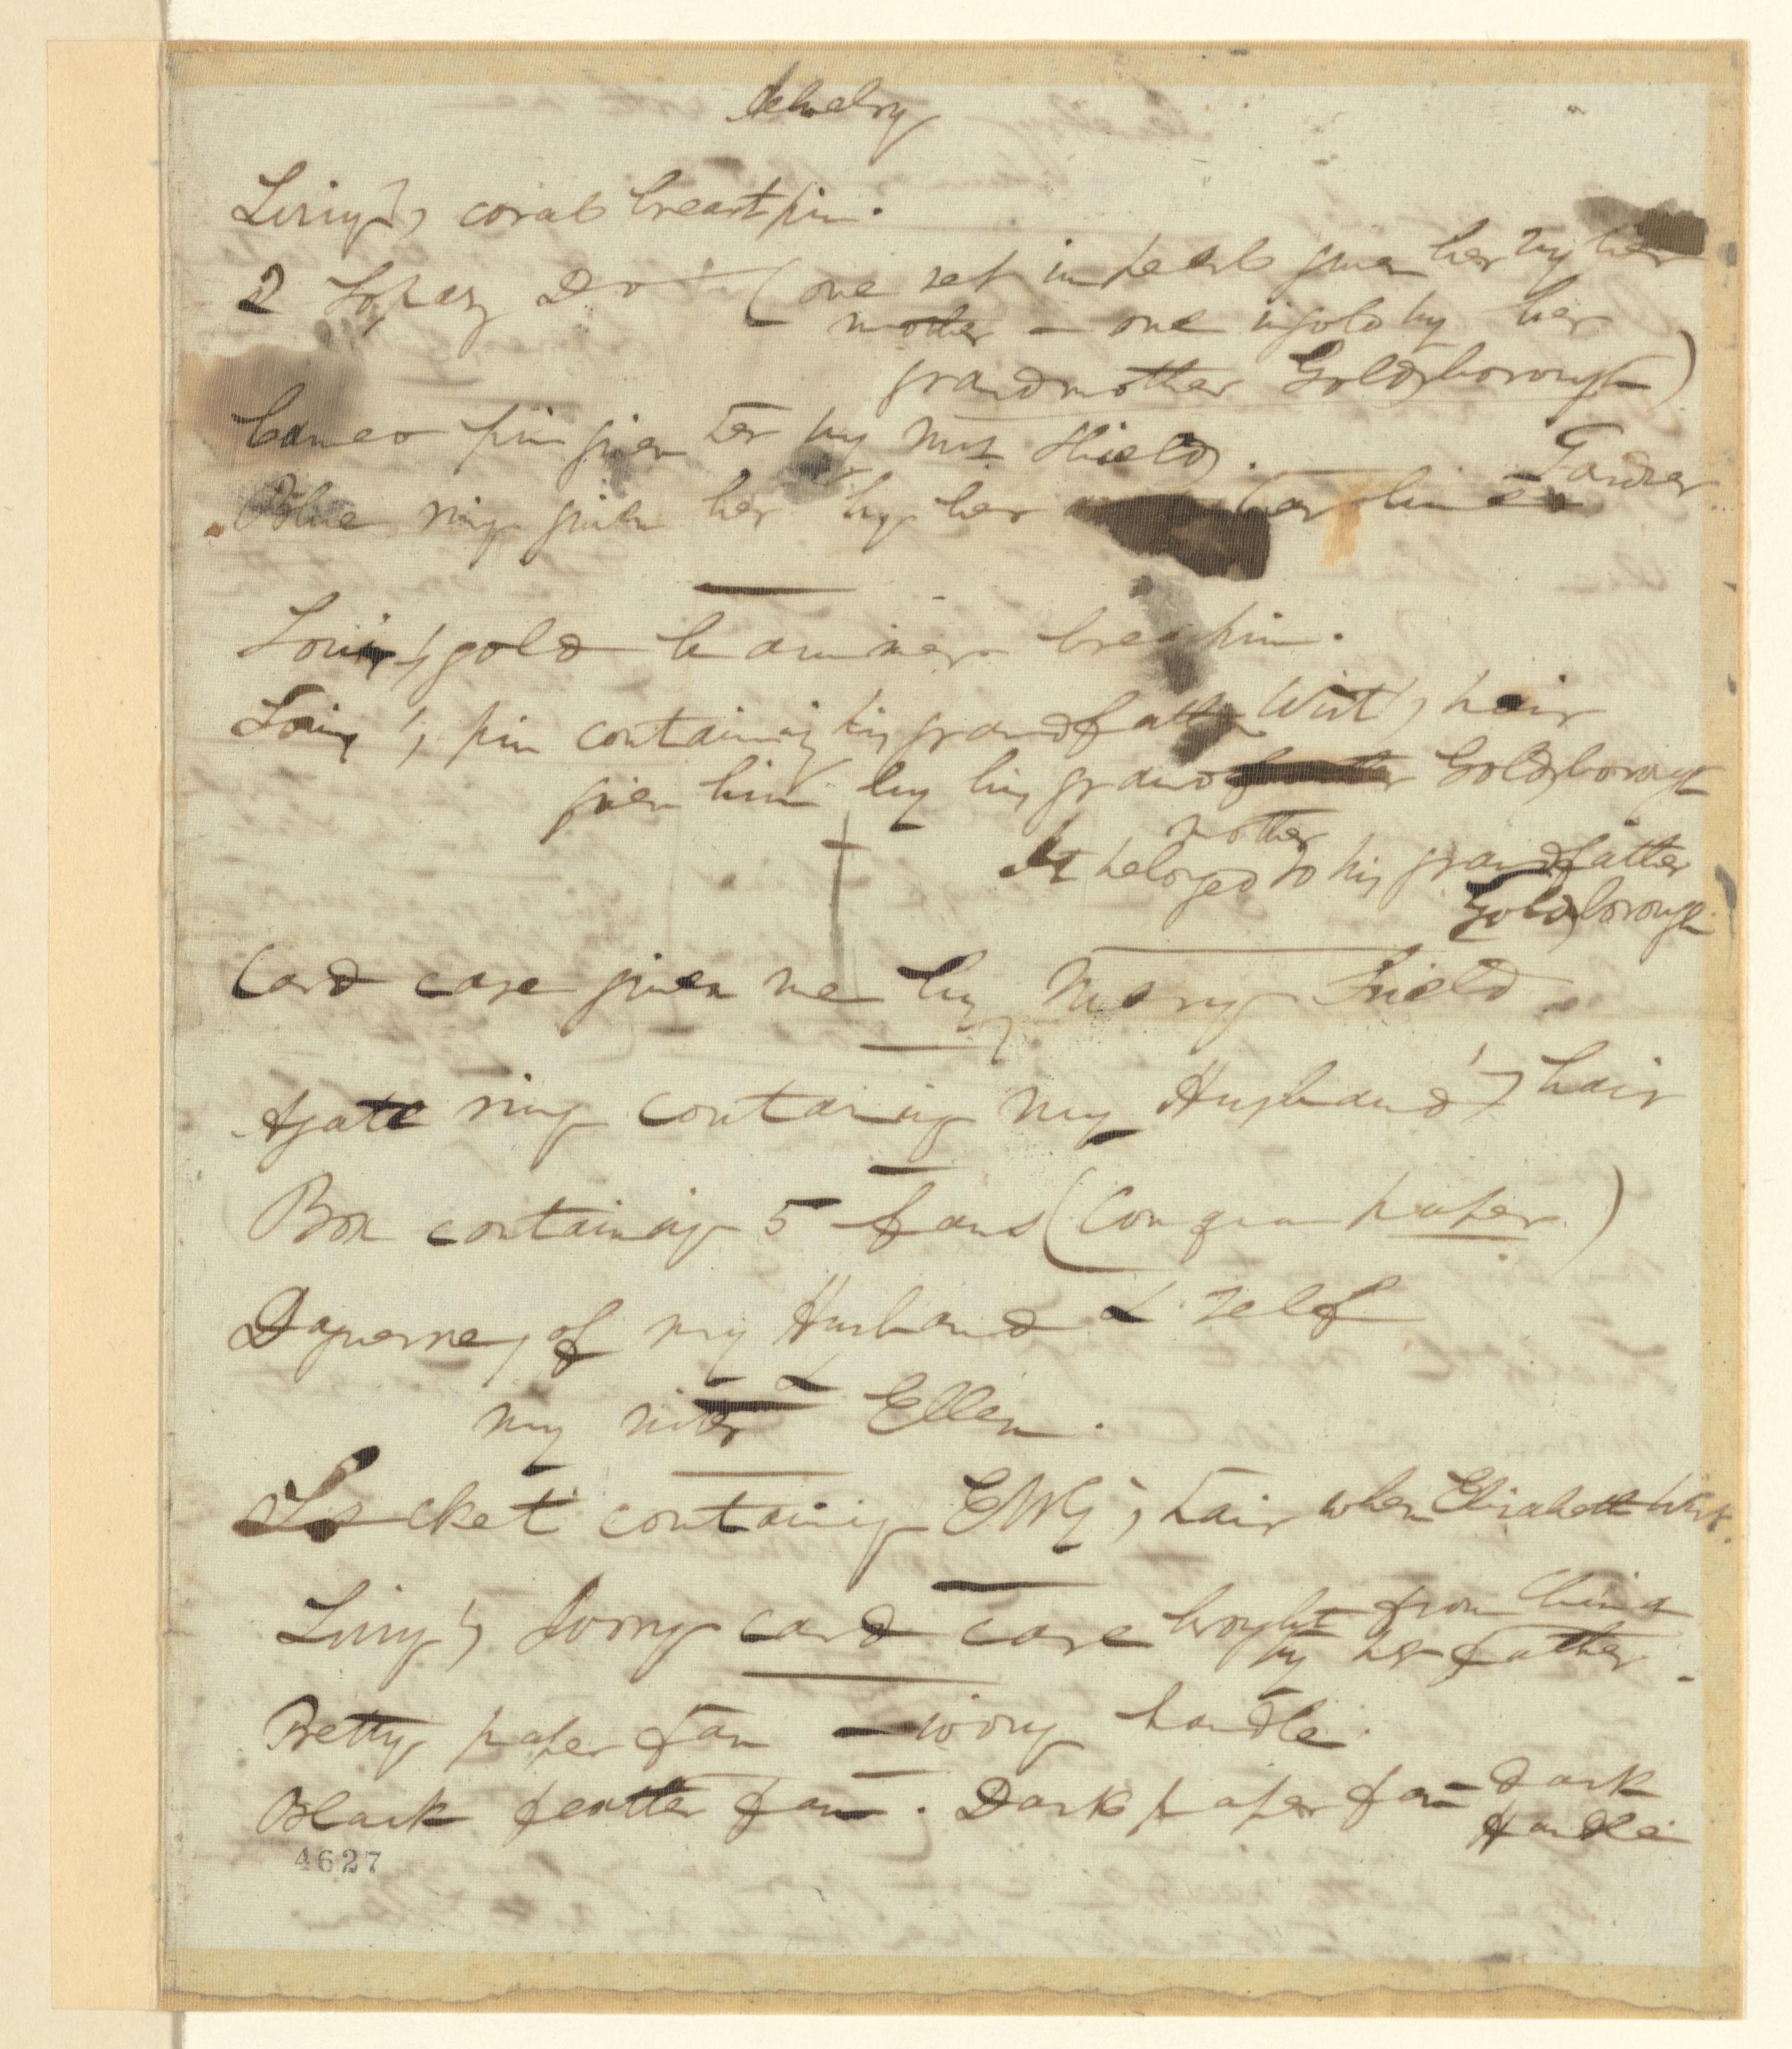 Jewelry
Lizzy's coral breastpin.
2 Topaz Do (one set in pearl given her by her
mother - one in gold by her
grandmother Goldsborough)
Cameo pin given her by Mrs Shield.
Gardner
Blue ring given her by her Caroline
Louis's gold hammer breastpin.
Louis's pin containing his grandfather Wirt's hair
given him by his grand Goldsborough
mother
It belonged to his grandfather
Goldsborough
Card case given me by Mary Shield
Agate ring containing my Husband's hair
Box containing 5 fans ( paper)
of my Husband & self
&
my sister Ellen.
Locket containing EWG's hair when Elizabeth Wirt.
Lizzy's Ivory card case brought from China
by her father.
Pretty paper fan - ivory handle.
Black feather fan. Dark paper fan - dark
Handle
4627